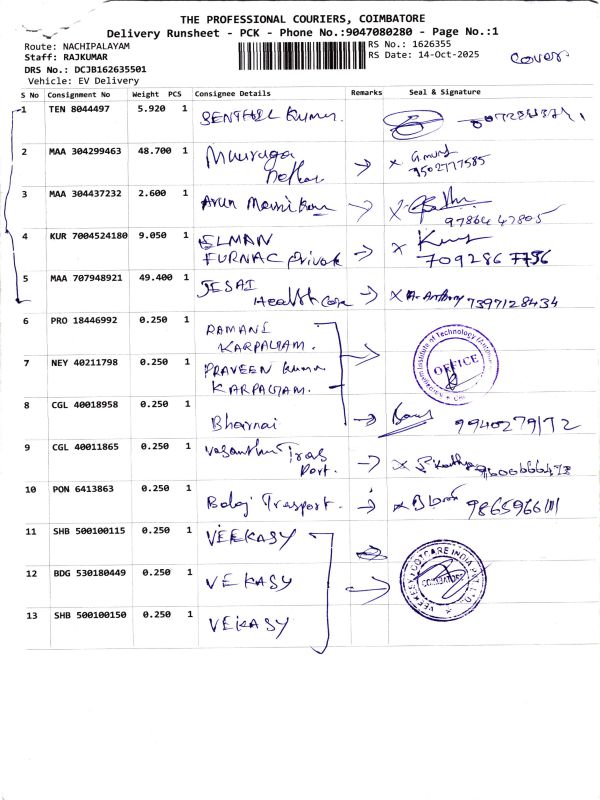 THE PROFESSIONAL COURIERS, COIMBATORE
Delivery Runsheet - PCK - Phone No.:9047080280 - Page No.:1
Route: NACHIPALAYAM
RS No.: 1626355
Staff: RAJKUMAR
RS Date: 14-Oct-2025
Cover
DRS No.: DCJB162635501
Vehicle: EV Delivery
S No Consignment No Weight PCS Consignee Details Remarks Seal & Signature
1 TEN 8044497 5.920 1 SENTHIL Kumar.
2 MAA 304299463 48.700 1 Muuruga
9502777585
3 MAA 304437232 2.600 1 Arun Manikam
97864 42805
4 KUR 7004524180 9.050 1 ELMAN
FURNAC Privat
709286 7756
5 MAA 707948921 49.400 1 JESAI
Health Care 7397128434
6 PRO 18446992 0.250 1 RAMANI
KARPAGAM.
OFFICE
7 NEY 40211798 0.250 1 PRAVEEN Kumar
KARPAGAM.
8 CGL 40018958 0.250 1 Bharnai
9940279172
9 CGL 40011865 0.250 1 Vasantha Tras
Port.
10 PON 6413863 0.250 1 Balaj Trasport.
11 SHB 500100115 0.250 1 VEEKASY
12 BDG 530180449 0.250 1 VEKASY
VEEKESY FOOTCARE INDIA PVT. LTD.
COIMBATORE
13 SHB 500100150 0.250 1 VEKASY